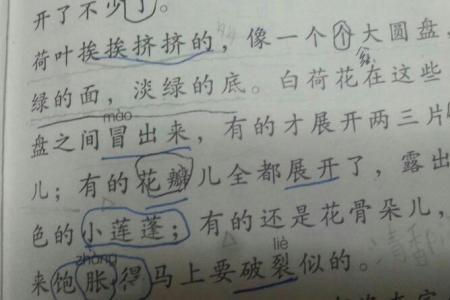 开了不少了。
荷叶挨挨挤挤的，像一个个大圆盘，
绿的面，淡绿的底。白荷花在这些
mào
盘之间冒出来，有的才展开两三片
儿；有的花瓣儿全都展开了，露出
色的小莲蓬；有的还是花骨朵儿，
zhàng liè
来饱胀得马上要破裂似的。
清香